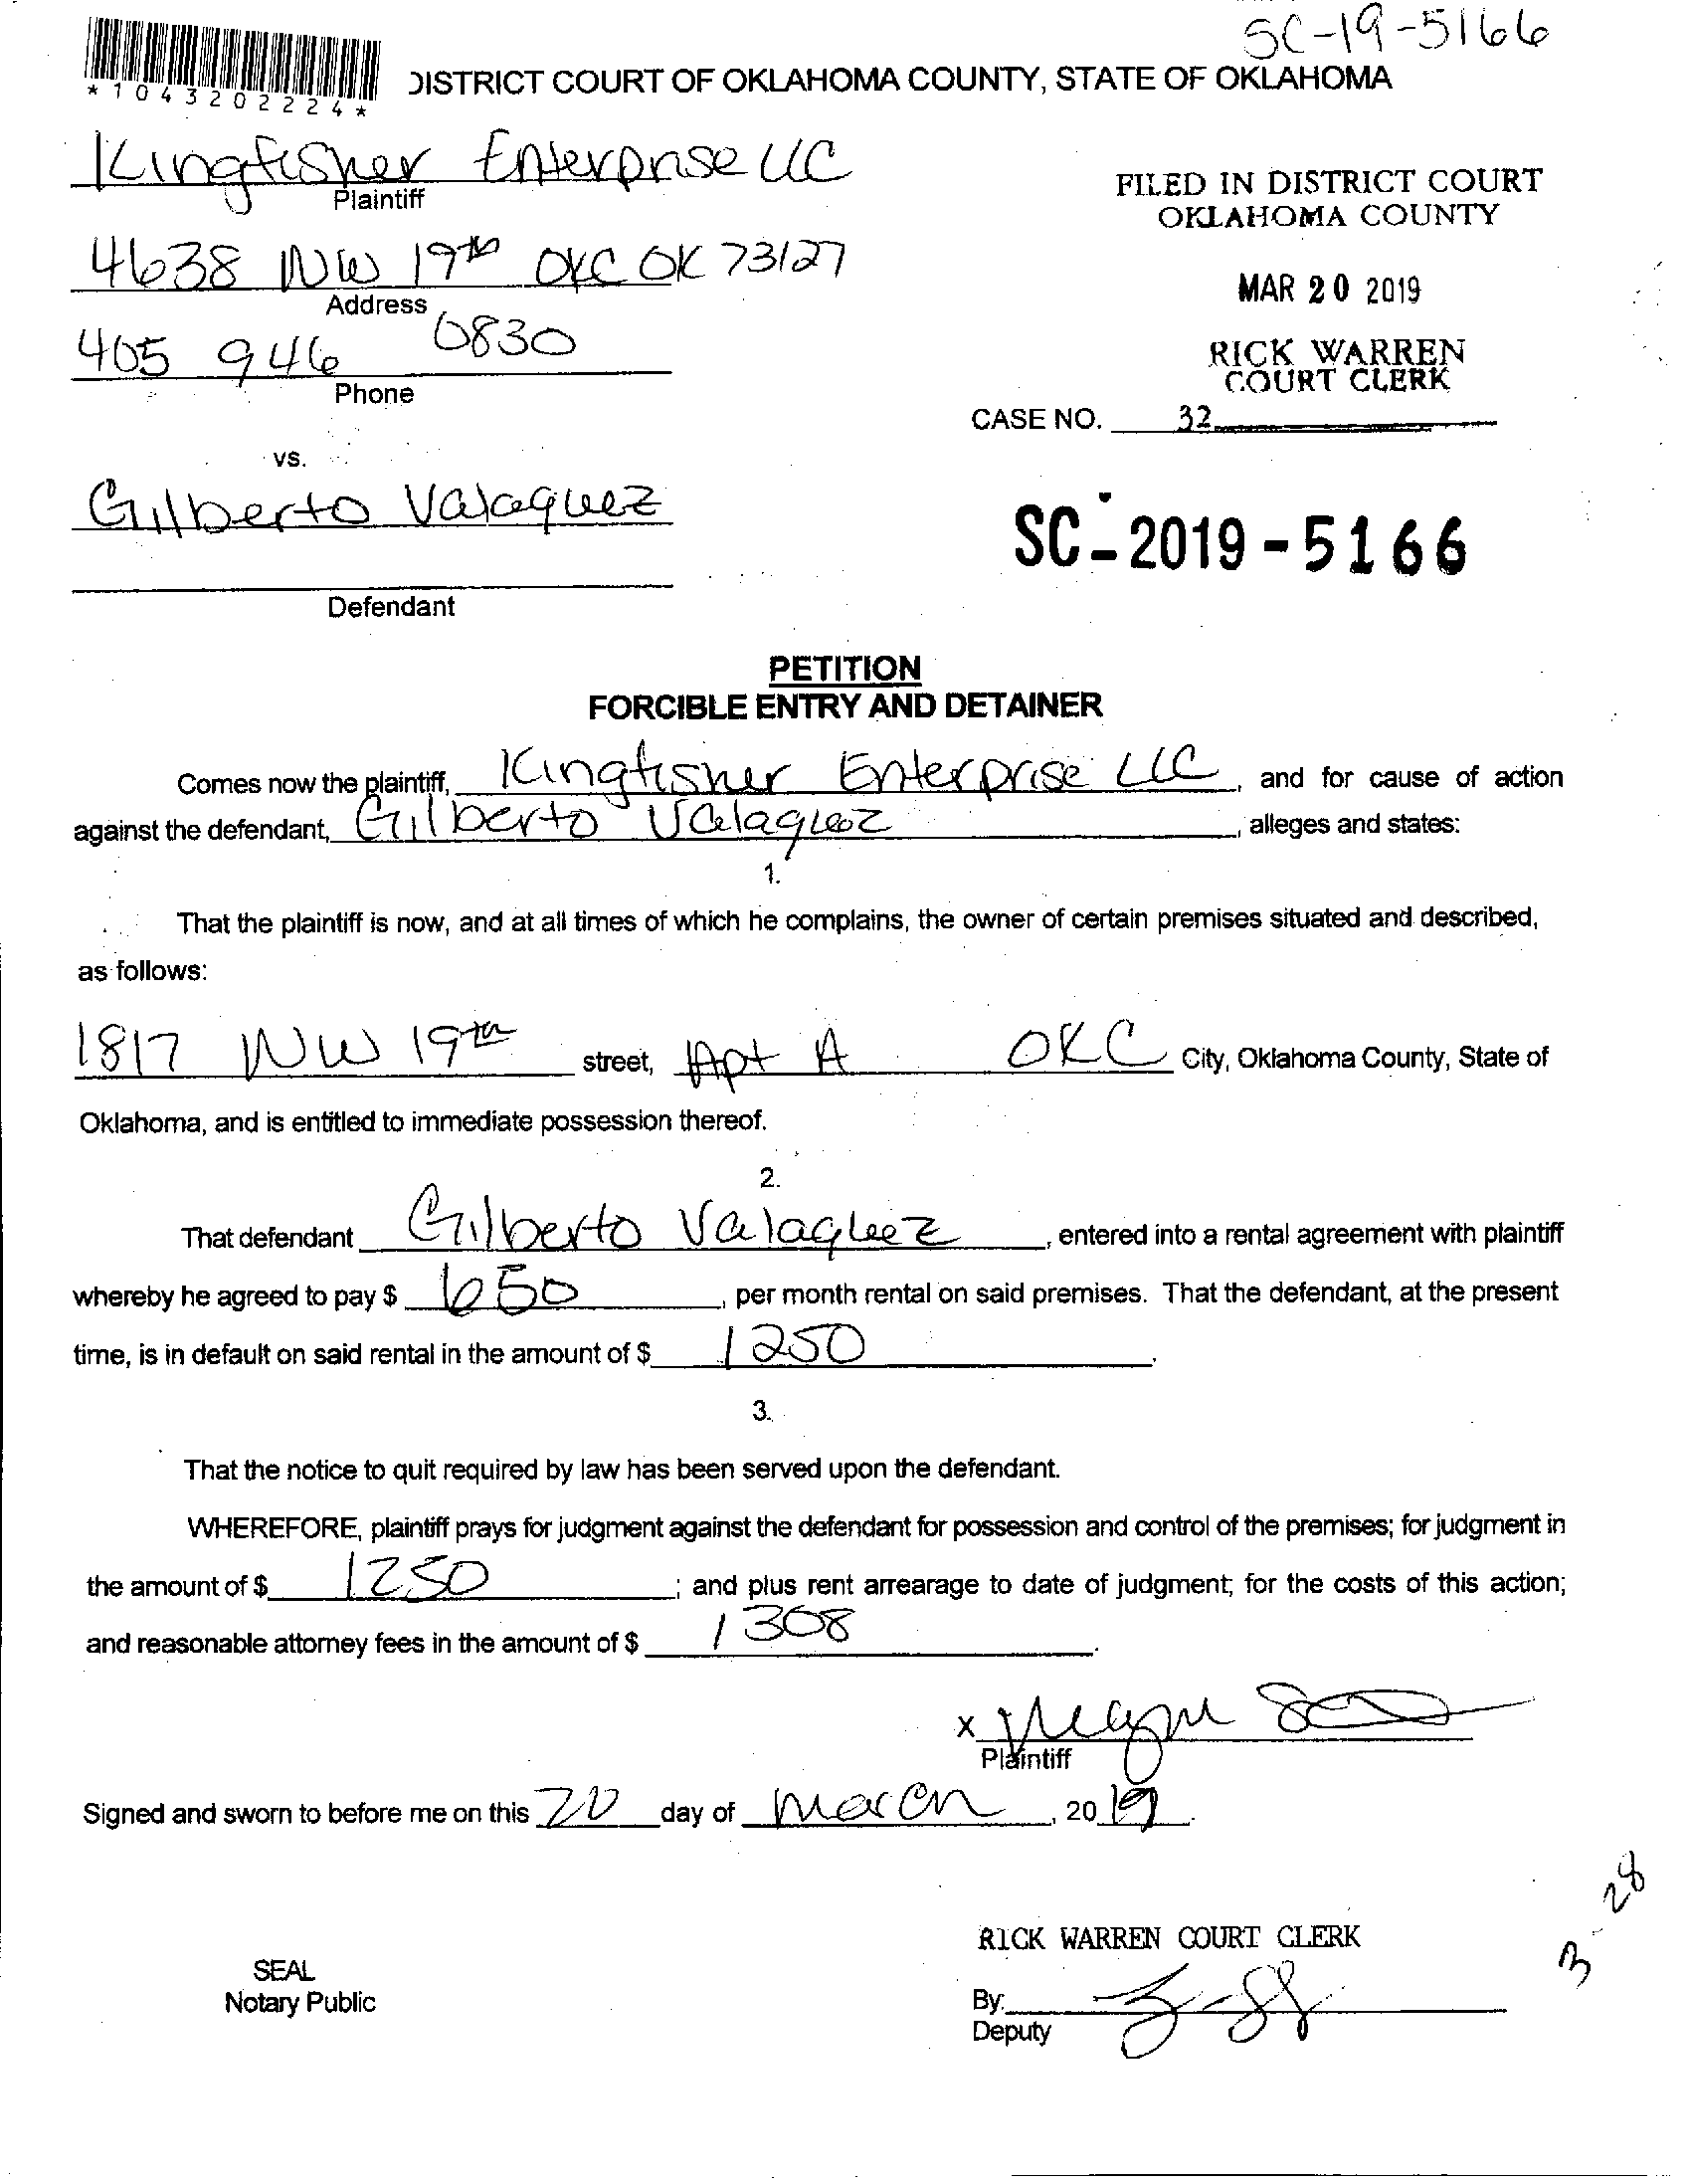 SC-19-5166
*1043202224*
DISTRICT COURT OF OKLAHOMA COUNTY, STATE OF OKLAHOMA
Kingfisher Enterprise LLC
Plaintiff
FILED IN DISTRICT COURT
OKLAHOMA COUNTY
4638 NW 19th OKC OK 73127
Address
MAR 20 2019
405 946 0830
Phone
RICK WARREN
COURT CLERK
CASE NO. 32
vs.
Gilberto Valaquez
SC-2019-5166
Defendant
PETITION
FORCIBLE ENTRY AND DETAINER
Comes now the plaintiff, Kingfisher Enterprise LLC, and for cause of action
against the defendant, Gilberto Valaquez, alleges and states:
1.
That the plaintiff is now, and at all times of which he complains, the owner of certain premises situated and described,
as follows:
1817 NW 19th street, Apt A OKC City, Oklahoma County, State of
Oklahoma, and is entitled to immediate possession thereof.
2.
That defendant Gilberto Valaquez, entered into a rental agreement with plaintiff
whereby he agreed to pay $ 650, per month rental on said premises. That the defendant, at the present
time, is in default on said rental in the amount of $ 1250.
3.
That the notice to quit required by law has been served upon the defendant.
WHEREFORE, plaintiff prays for judgment against the defendant for possession and control of the premises; for judgment in
the amount of $ 1250; and plus rent arrearage to date of judgment; for the costs of this action;
and reasonable attorney fees in the amount of $ 1308.
x
Plaintiff
Signed and sworn to before me on this 20 day of March, 2019.
3-28
RICK WARREN COURT CLERK
SEAL
Notary Public
By:
Deputy